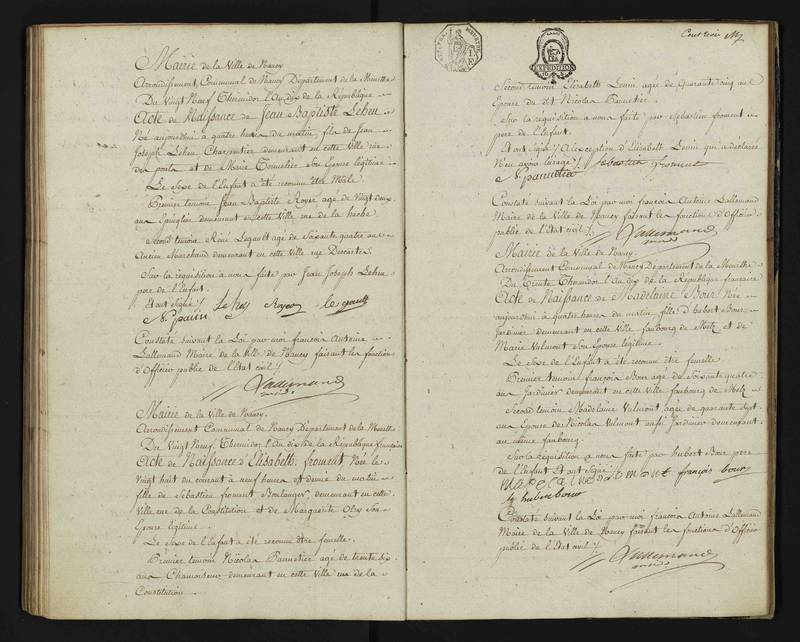 Mairie de la Ville de Nancy
Arrondissement Communal de Nancy Département de la Meurthe
Du Vingt Neuf Thermidor l'An dix de la République
Acte de Naissance de Jean Baptiste Leheu
Né aujourdhui à quatre heures du matin, fils de Jean
Joseph Leheu Charpentier demeurant en cette Ville rue
des ponts et de Marie Tonnelier Son Epouse légitime
Le Sexe de l'Enfant a été reconnu être Male
Premier temoin Jean Baptiste Royer agé de Vingt deux
ans Epinglier demeurant en cette Ville rue de la hache
Second temoin René Legault agé de Soixante quatre ans
Ancien Marchand demeurant en cette Ville rue Descartes
Sur la réquisition à nous faite par Jean Joseph Leheu
pere de l'Enfant.
Et ont Signé / Royer le gault
Constaté suivant la Loi par moi françois Antoine
Lallemand Maire de la Ville de Nancy faisant les fonctions
d'Officier public de l'état civil /.
Lallemand
Mairie de la Ville de Nancy.
Arrondissement Communal de Nancy Département de la Meurthe
Du Vingt Neuf Thermidor, l'An dix de la République française
Acte de Naissance d'Elisabeth froment, Née le
Vingt huit du courant à neuf heures et demie du matin
fille de Sebastien froment Boulanger, demeurant en cette
Ville rue de la Constitution et de Marguerite Olry Son
Epouse légitime
Le Sexe de l'Enfant a été reconnu être femelle.
Premier temoin Nicolas Pannetier agé de trente six
ans Chamoiseur demeurant en cette Ville rue de la
Constitution
EXPEDITION
Second temoin Elisabeth Lenin agée de Quarante cinq ans
Epouse du dit Nicolas Pannetier.
Sur la réquisition à nous faite par Sebastien froment
pere de l'Enfant.
Et ont Signé à l'exception d'Elisabeth Lenin qui a déclarée
N'en avoir l'usage / Sebastien froment
N. pannetier
Constaté suivant la Loi par moi françois Antoine Lallemand
Maire de la Ville de Nancy faisant les fonctions d'Officier
public de l'état civil /.
Lallemand
Mairie de la Ville de Nancy.
Arrondissement Communal de Nancy Département de la Meurthe
Du Trente Thermidor l'An dix de la République française
Acte de Naissance de Madelaine Bour Née
aujourdhui à quatre heures du matin, fille d'hubert Bour
Jardinier demeurant en cette Ville faubourg de Metz et de
Marie Valmont Son Epouse légitime.
Le Sexe de l'Enfant a été reconnu être femelle
Premier temoin françois Bour agé de Soixante quatre
ans Jardinier demeurant en cette Ville faubourg de Metz
Second temoin Madelaine Valmont, agée de quarante Sept
ans Epouse de Nicolas Valmont aussi Jardinier demeurant
au même faubourg.
Sur la réquisition à nous faite par hubert Bour pere
de l'Enfant Et ont Signé
françois bour
hubert bour
Constaté suivant la Loi par moi françois Antoine Lallemand
Maire de la Ville de Nancy faisant les fonctions d'Officier
public de l'état civil /.
Lallemand